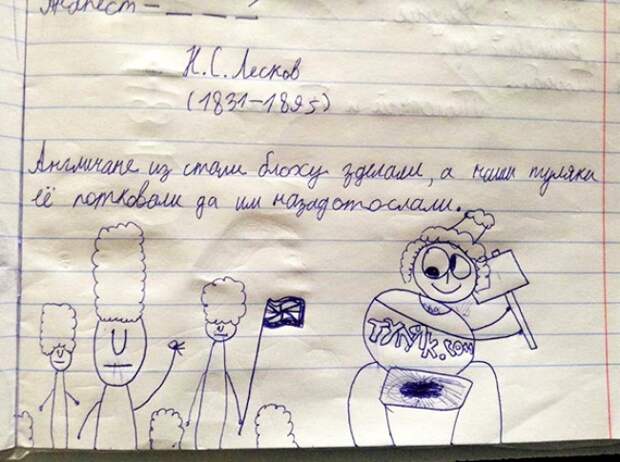 Анапест – _ _ _
Н.С. Лесков
(1831-1895)
Англичане из стали блоху зделали, а наши туляки
её потковали да им назадотослали.
ТУЛЯК.COM